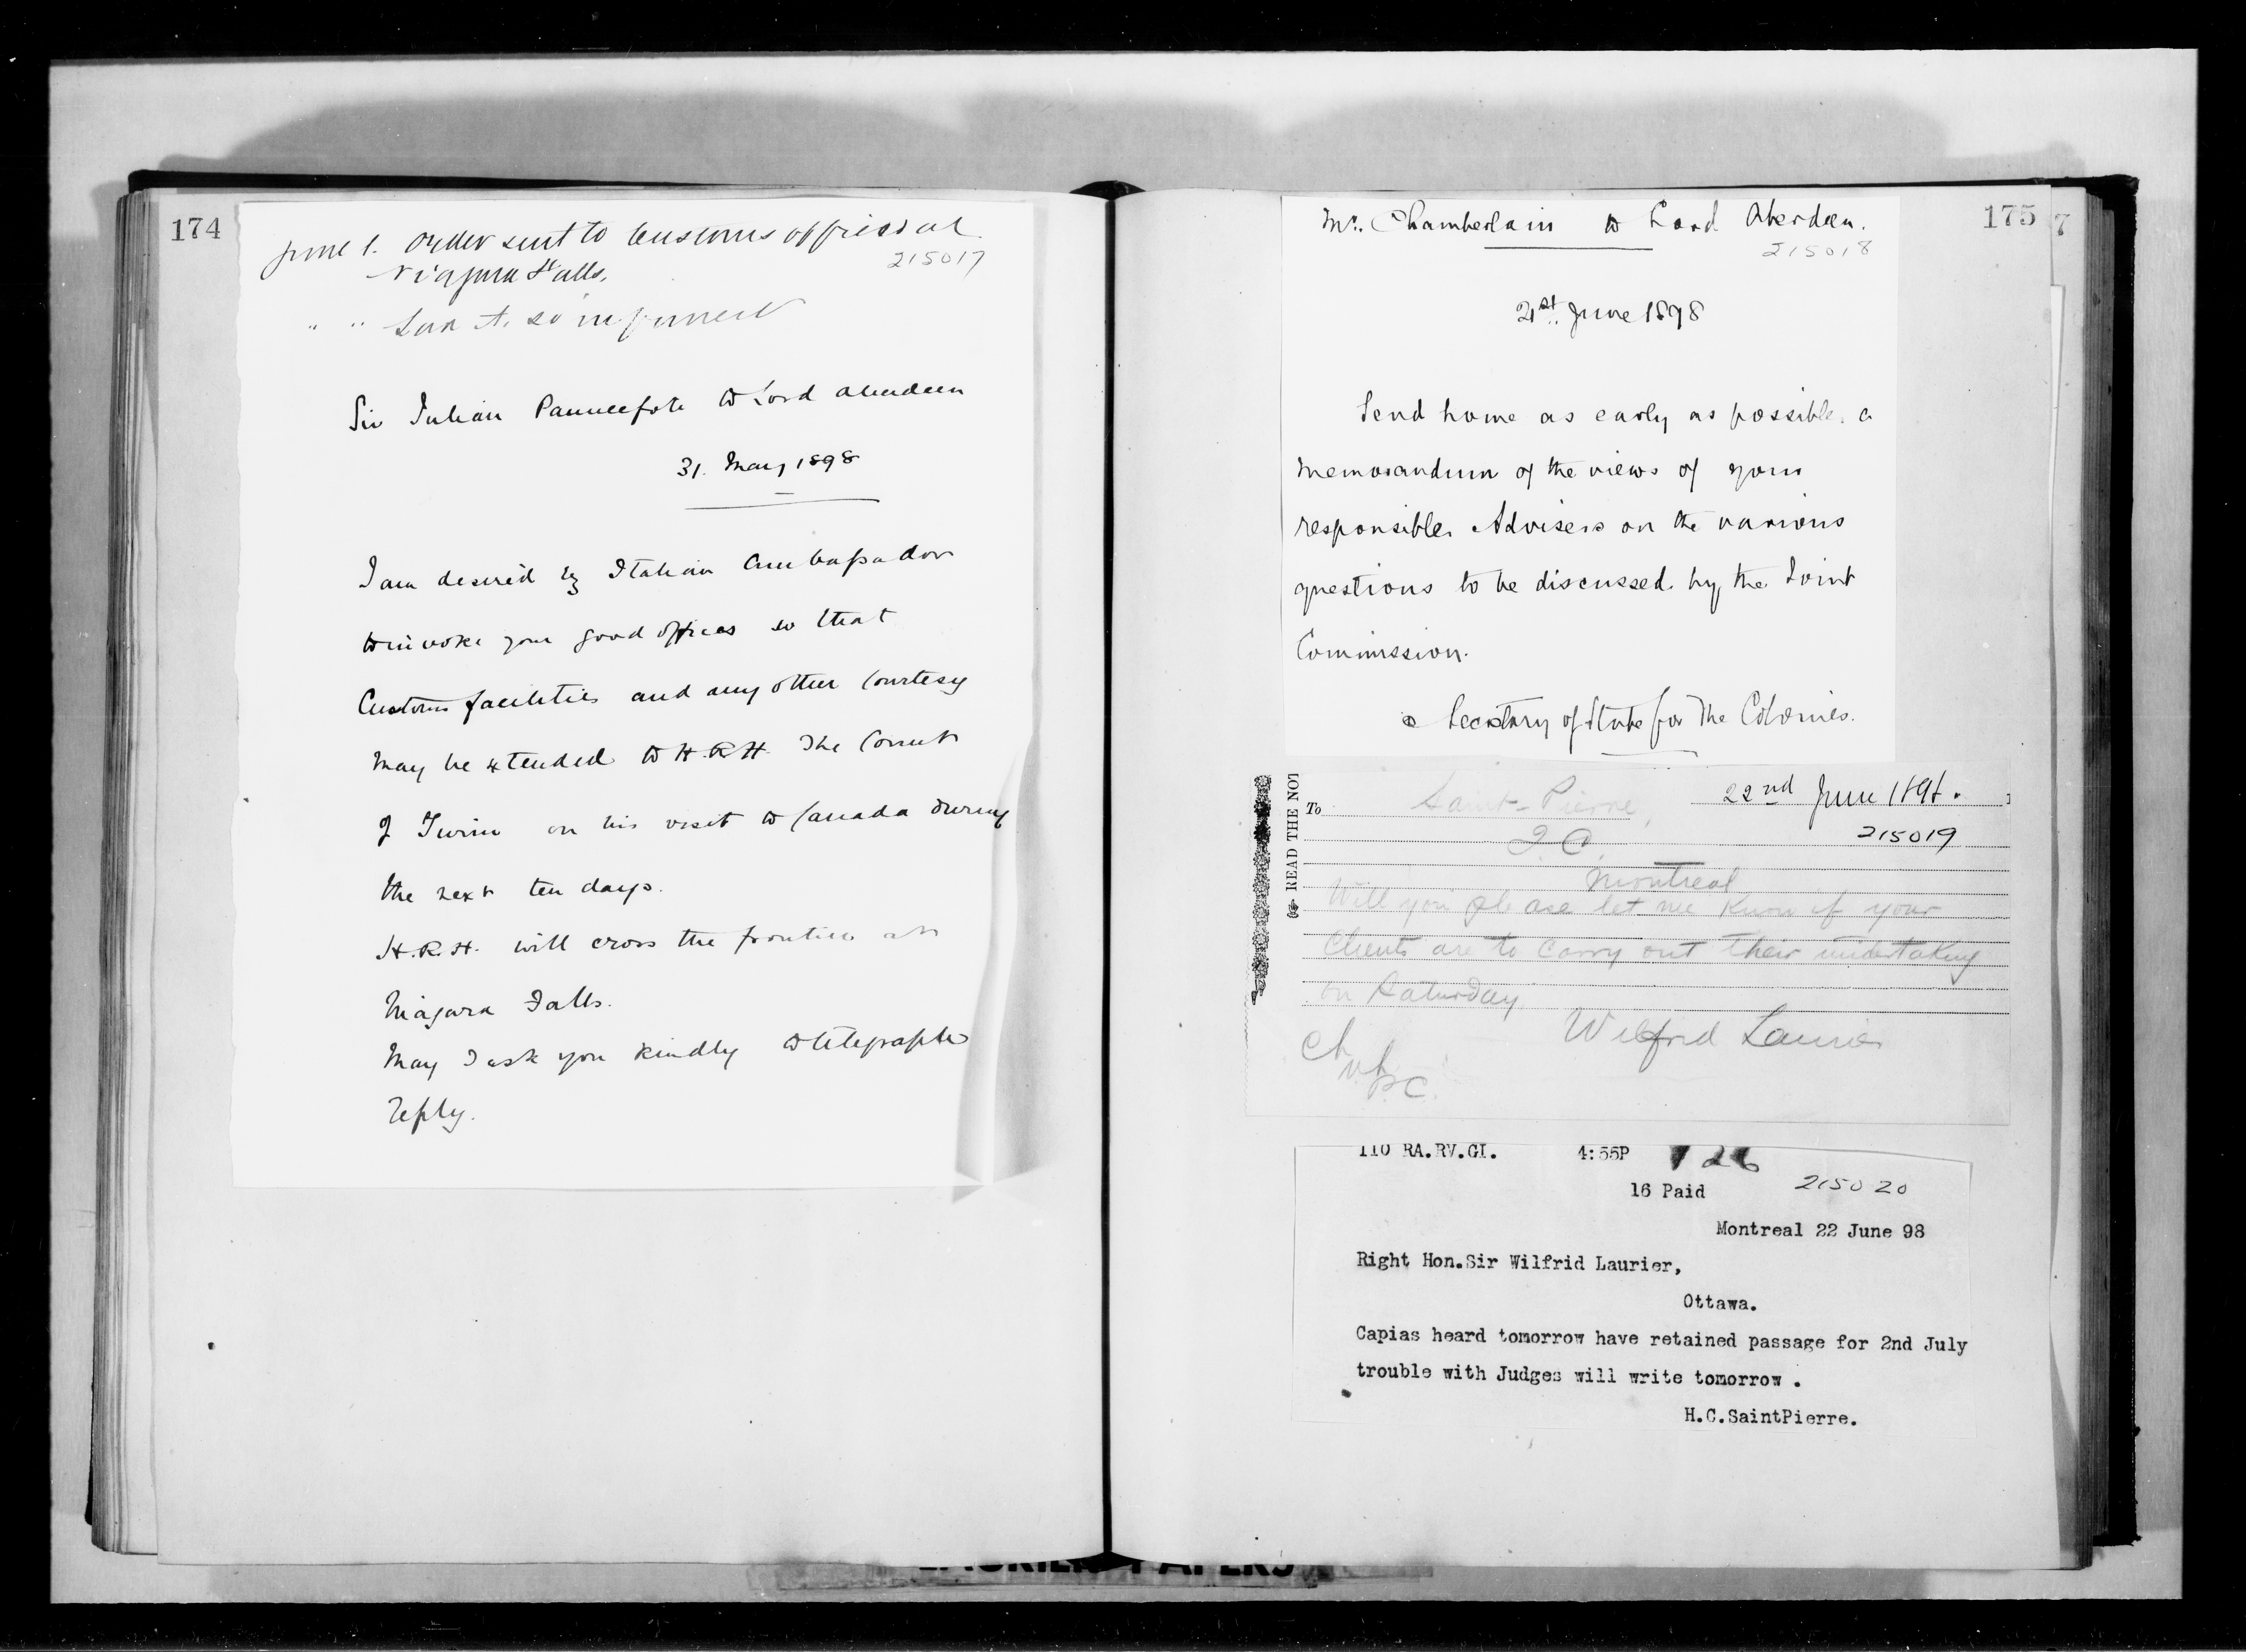 174
June 1. Order sent to Customs officers at
215017
Niagara Falls.
" " Lord A. so informed
Sir Julian Pauncefote to Lord Aberdeen
31. May 1898
I am desired by Italian Ambassador
to invoke your good offices so that
Customs facilities and any other courtesy
may be extended to H.R.H. The Count
of Turin on his visit to Canada during
the next ten days.
H.R.H. will cross the frontier at
Niagara Falls.
May I ask you kindly to telegraph
reply.
175
7
Mr. Chamberlain to Lord Aberdeen.
215018
21st June 1898
Send home as early as possible a
memorandum of the views of your
responsible Advisers on the various
questions to be discussed by the Joint
Commission.
Secretary of State for the Colonies.
READ THE NOT
22nd June 1898.
To Saint-Pierre,
215019
Q.C.
Montreal
Will you please let me know if your
Clients are to carry out their undertaking
on Saturday
Wilfrid Laurier
Ch
P.C.
110 RA.RV.GI. 4:55P 126
16 Paid
215020
Montreal 22 June 98
Right Hon.Sir Wilfrid Laurier,
Ottawa.
Capias heard tomorrow have retained passage for 2nd July
trouble with Judges will write tomorrow .
H.C.SaintPierre.
LAURIER PAPERS